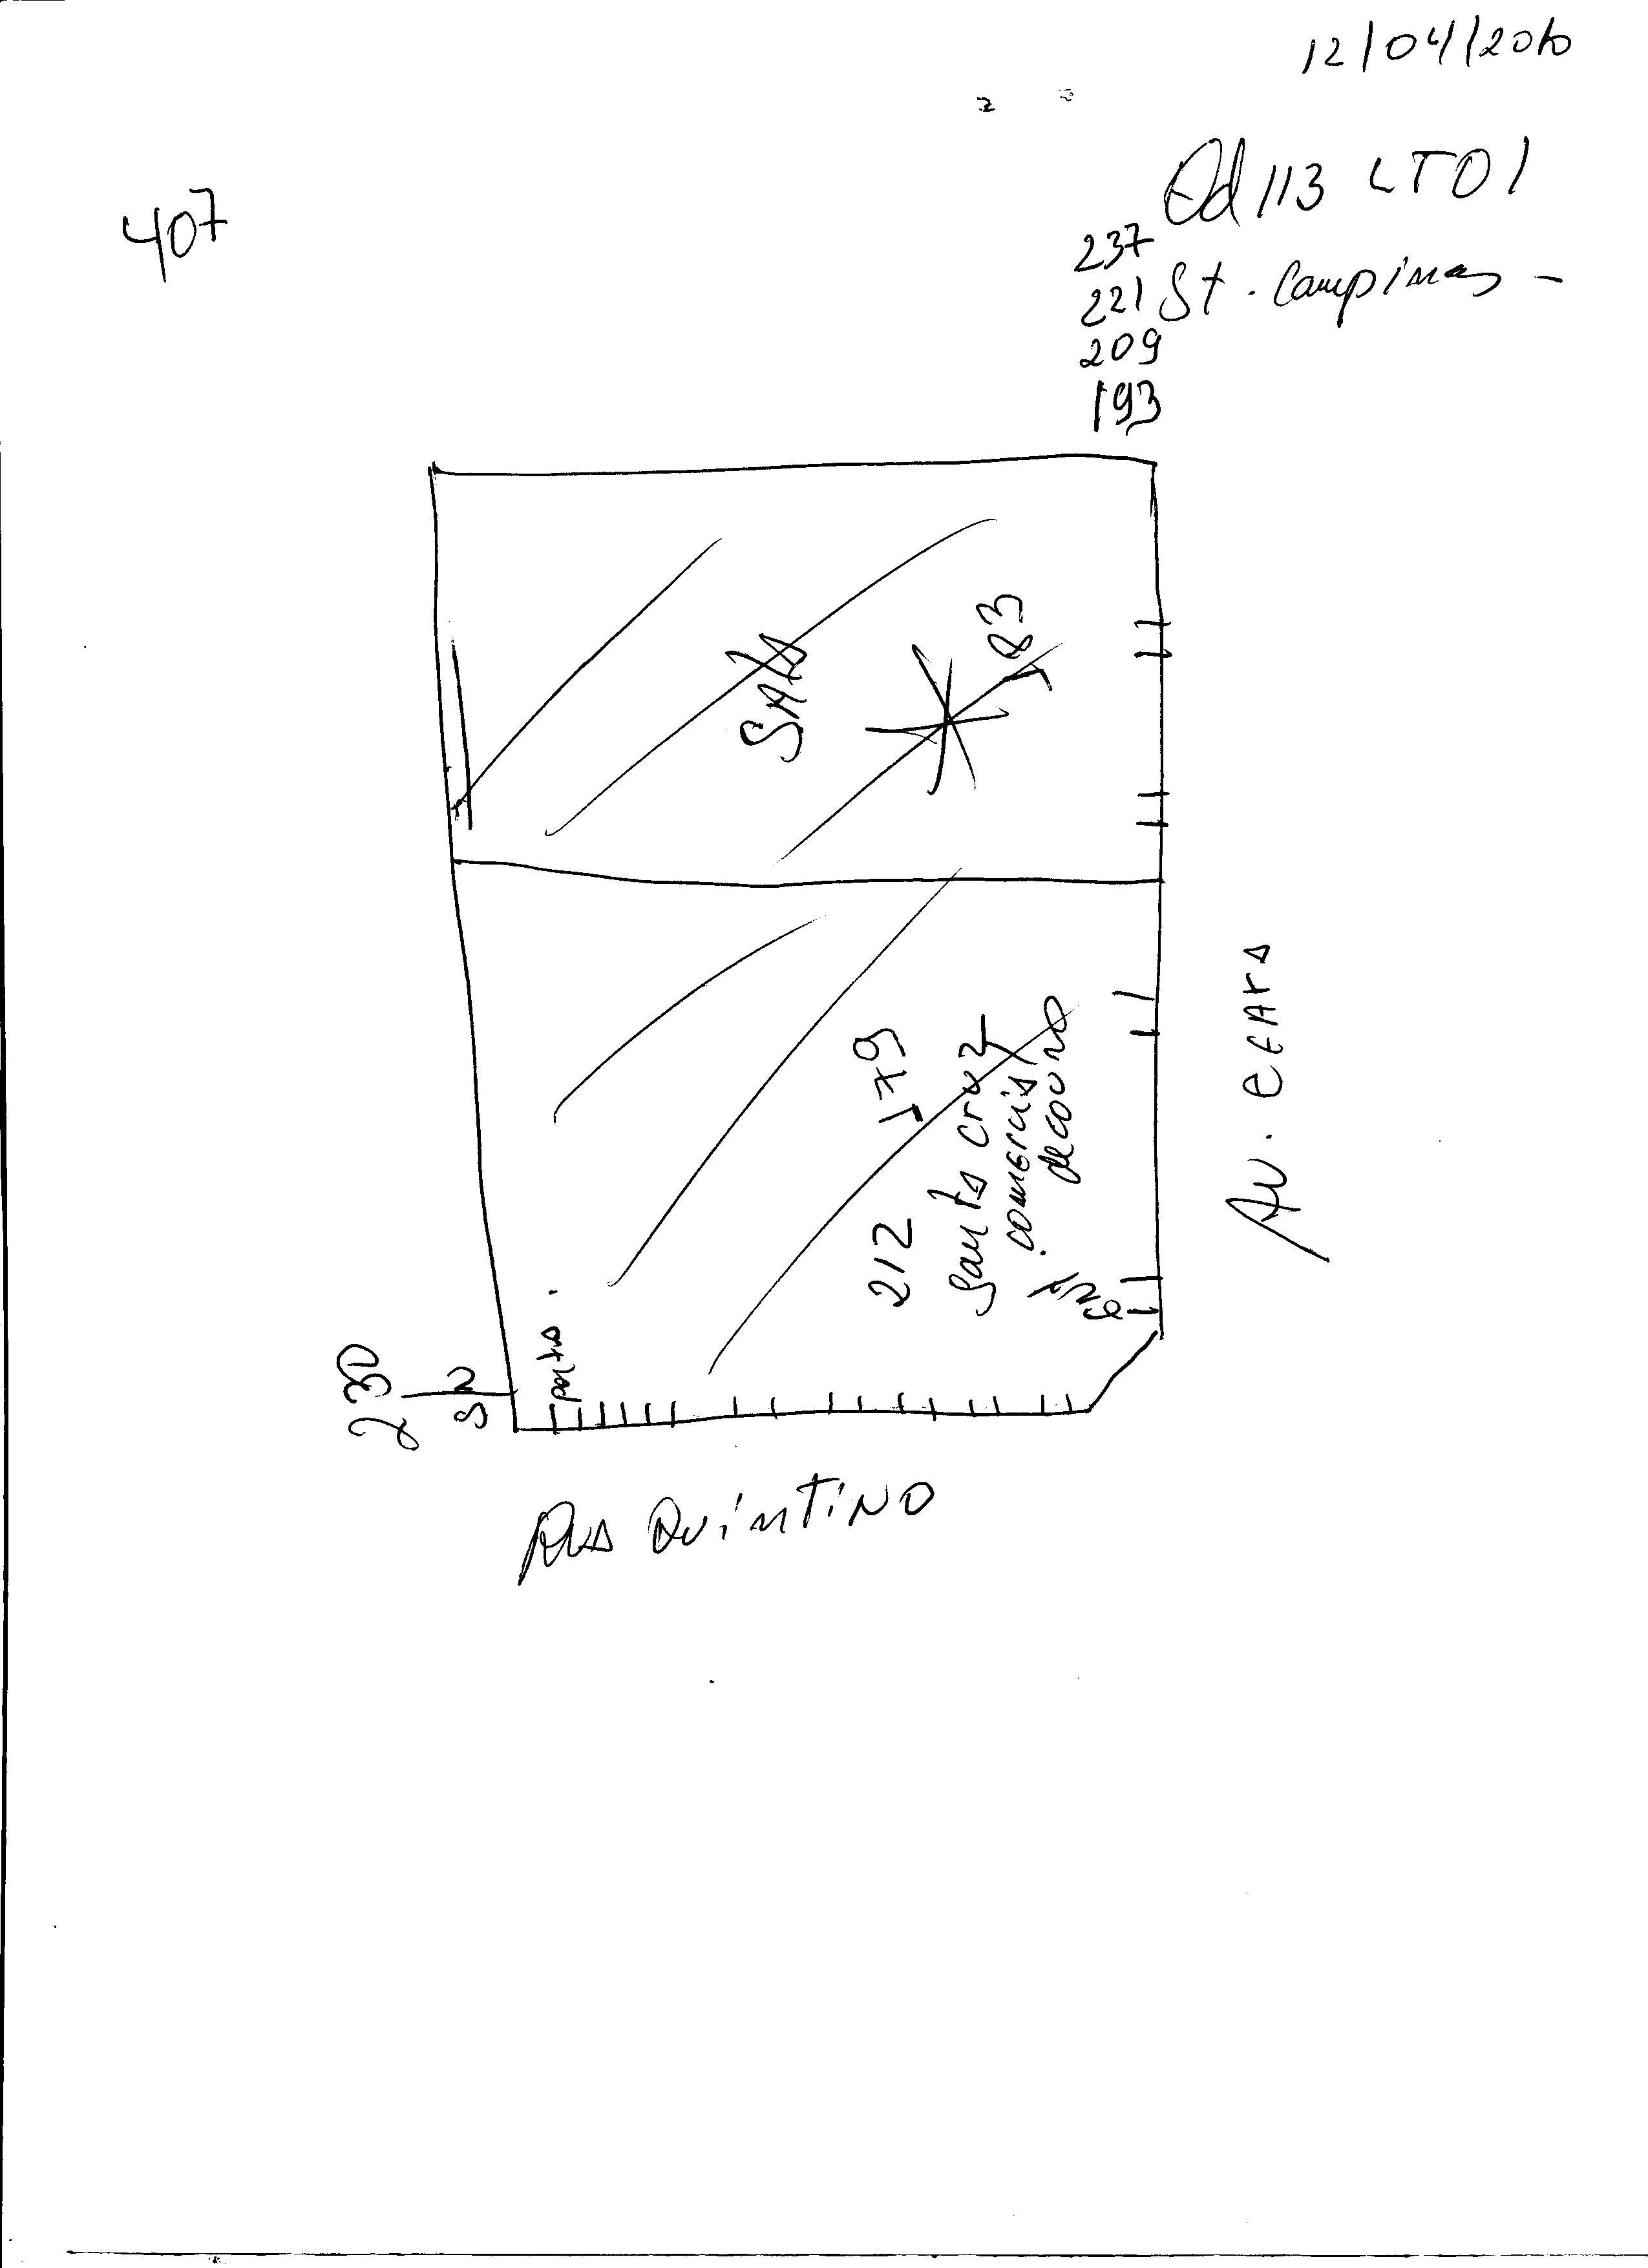 12/04/2010
407
Qd 113 LT 01
237
221 St. Campinas -
209
193
SALA
183
179
212
Santa cruz
comercial
de couro
Av. CEARA
230
porta
RUA QUINTINO